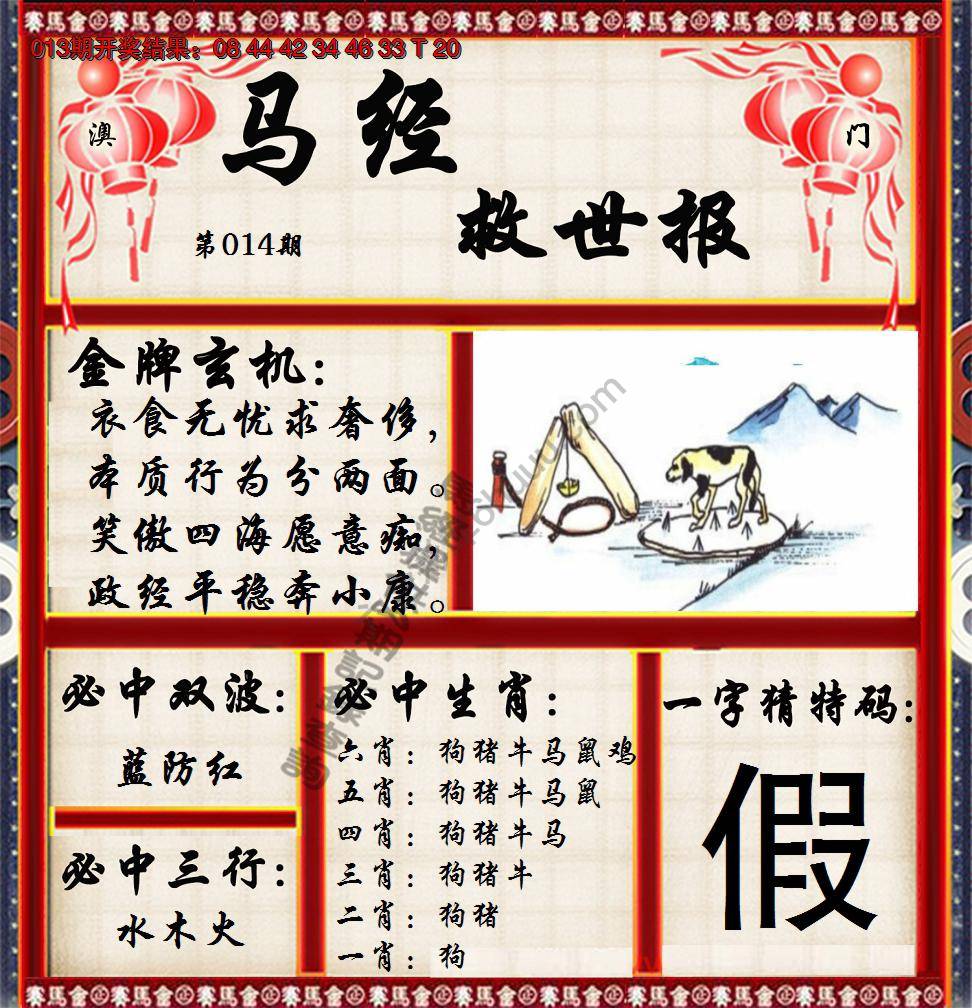 赛馬會 赛馬會 赛馬會 赛馬會 赛馬會 赛馬會 赛馬會 赛馬會
013期开奖结果：08 44 42 34 46 33 T 20
澳
门
马经
救世报
第014期
金牌玄机：
衣食无忧求奢侈，
本质行为分两面。
笑傲四海愿意痴，
政经平稳奔小康。
必中双波：
蓝防红
必中三行：
水木火
必中生肖：
六肖：狗猪牛马鼠鸡
五肖：狗猪牛马鼠
四肖：狗猪牛马
三肖：狗猪牛
二肖：狗猪
一肖：狗
一字猜特码：
假